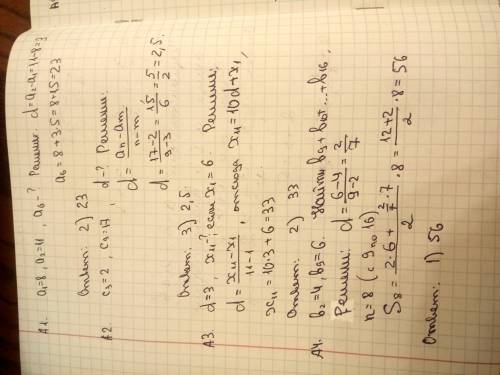 A1. a₁=8, a₂=11, a₆-? Решение: d=a₂-a₁=11-8=3
a₆=8+3·5=8+15=23
Ответ: 2) 23
A2 c₃=2, c₉=17, d-? Решение:
d=\frac{aₙ-aₘ}{n-m}
d=\frac{17-2}{9-3}=\frac{15}{6}=\frac{5}{2}=2,5.
Ответ: 3) 2,5.
A3. d=3, x₁₁-?, если x₁=6. Решение:
d=\frac{x₁₁-x₁}{11-1}, отсюда x₁₁=10d+x₁,
x₁₁=10·3+6=33
Ответ: 2) 33
A4. b₂=4, b₉=6. Найти b₉+b₁₀+...+b₁₆,
Решение: d=\frac{6-4}{9-2}=\frac{2}{7}
n=8 (с 9 по 16)
S₈=\frac{2·6+\frac{2}{7}·7}{2}·8=\frac{12+2}{2}·8=56
Ответ: 1) 56